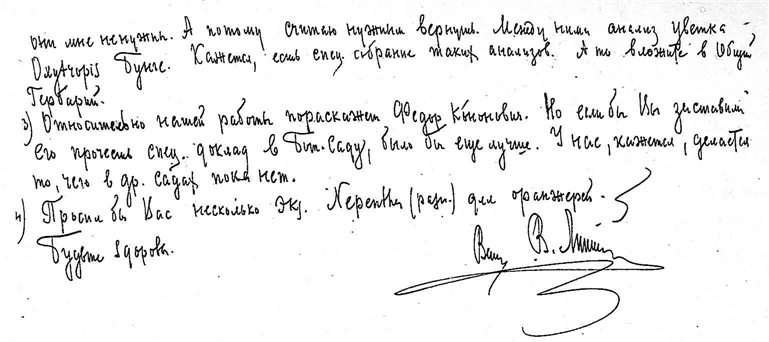 они мне ненужны. А потому считаю нужным вернуть. Между ними анализ цветка
Oxytropis Бунге. Кажется, есть спец. собрание таких анализов. А то вложите в Общий
Гербарий.
3) Относительно нашей работы порасскажет Федор Кононович. Но если бы Вы заставили
его прочесть спец. доклад в Бот. Саду, было бы еще лучше. У нас, кажется, делается
то, чего в др. садах пока нет.
4) Просил бы Вас несколько экз. Nepenthes (разн.) для оранжерей.
Будьте здоровы.
Ваш В.